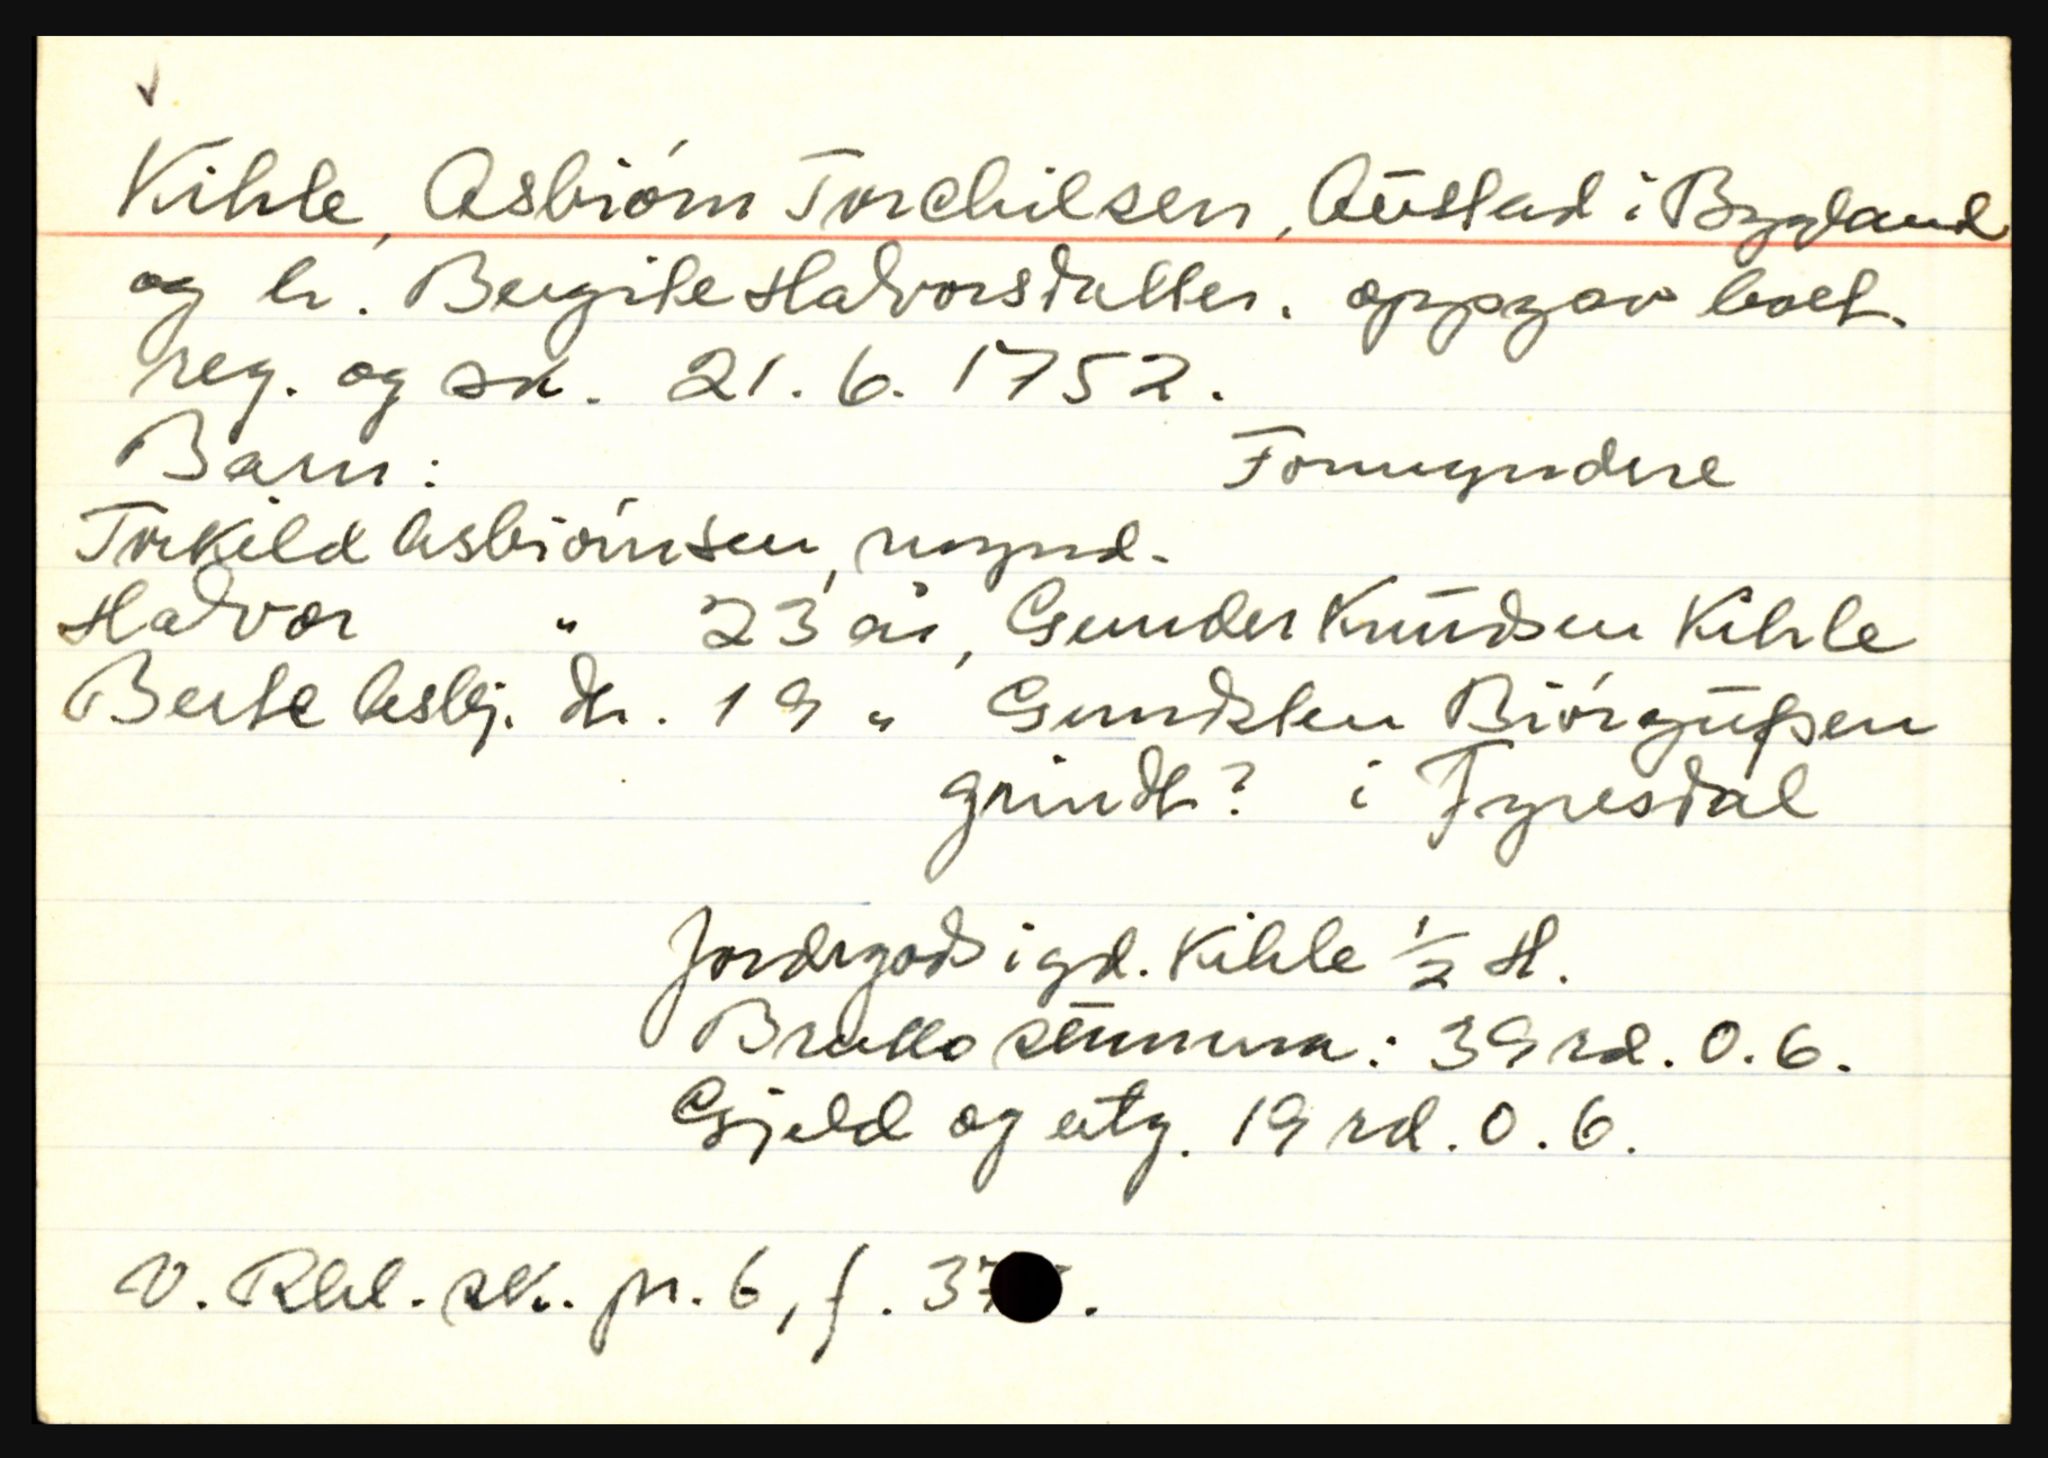 Kihle, Asbiórn Torchilsen, Aŭstad i Bygland
og h. Bergite Halvorsdatter. oppgav boet.
reg. og sk. 21.6.1752.
Barn: Formyndere
Torkild Asbiórnsen, mynd.
Halvor " 23 år, Gunder Knŭdsen Kihle
Berte Asbj. dtr. 19 " Gundsten Biórgŭfsen
grindt? i Fyresdal
Jordegods i gd. Kihle ½ H.
Brutto sŭmma: 39 rd. 0. 6.
Gjeld og utg. 19 rd. 0. 6.
V. Rbl. sk. pr. 6, f.